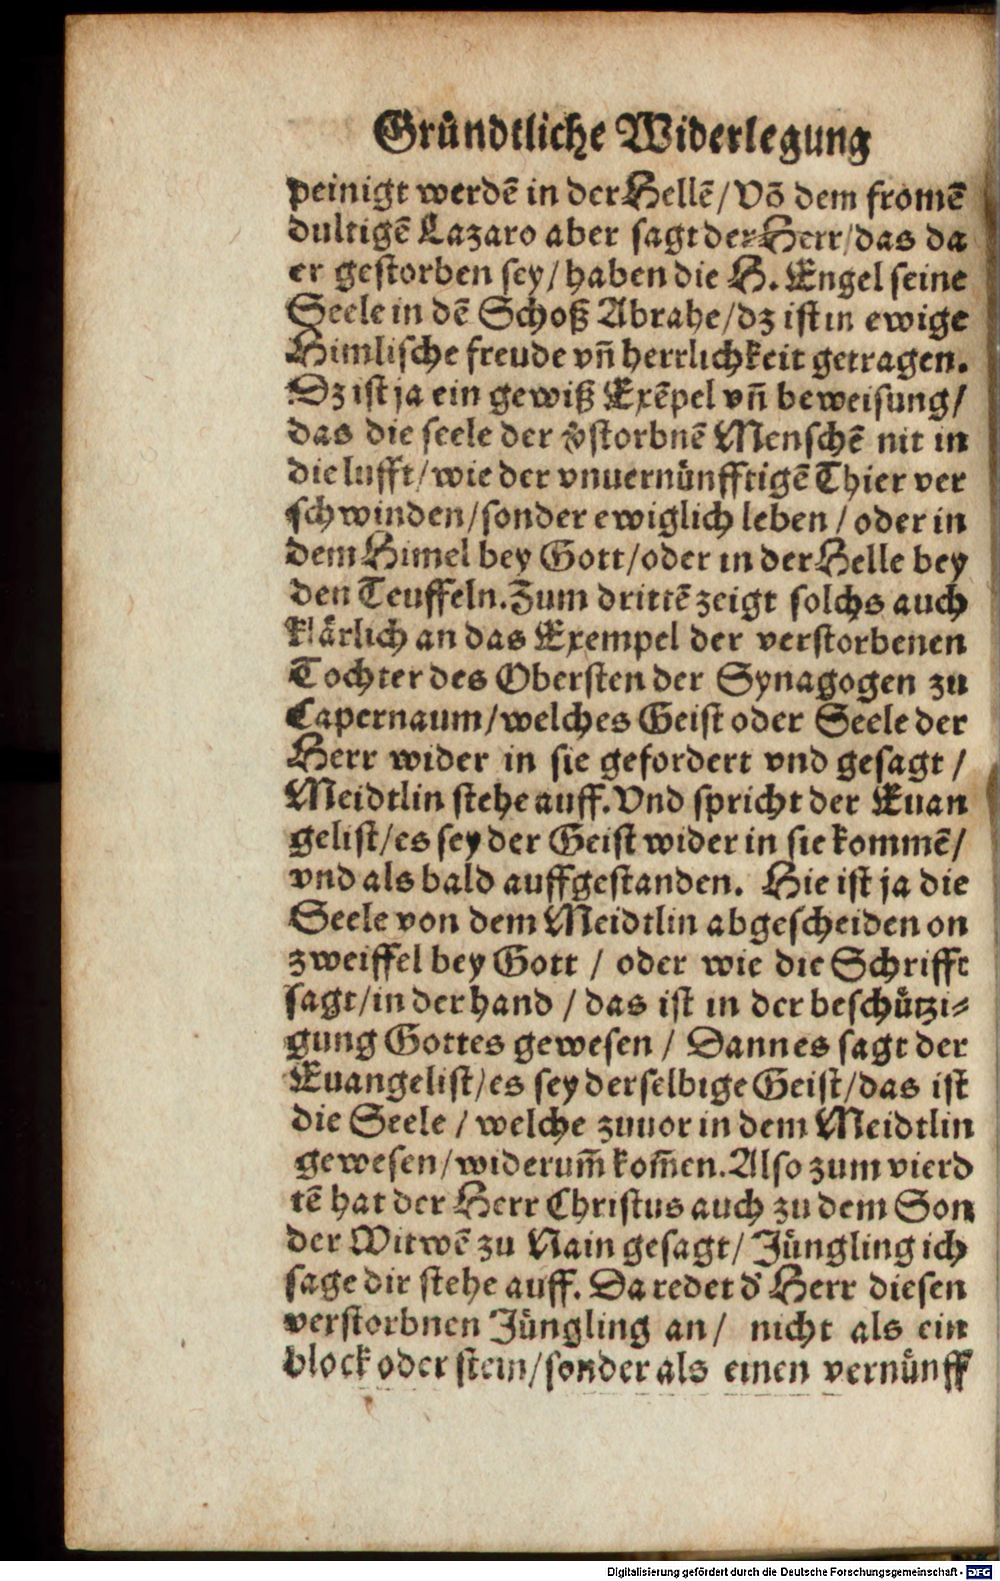 Gruͤndtliche Widerlegung
peinigt werdẽ in der Hellẽ/ Võ dem fromẽ
dultigẽ Lazaro aber sagt der Herr/ das da
er gestorben sey/ haben die H. Engel seine
Seele in dẽ Schoß Abrahe/ dz ist in ewige
Himlische freude vñ herrlichkeit getragen.
Dz ist ja ein gewiß Exẽpel vñ beweisung/
das die seele der v̾storbnẽ Menschẽ nit in
die lufft/ wie der vnuernuͤnfftigẽ Thier ver
schwinden/ sonder ewiglich leben / oder in
dem Himel bey Gott/ oder in der Helle bey
den Teuffeln. Zum drittẽ zeigt solchs auch
klaͤrlich an das Exempel der verstorbenen
Tochter des Obersten der Synagogen zu
Capernaum/ welches Geist oder Seele der
Herr wider in sie gefordert vnd gesagt /
Meidtlin stehe auff. Vnd spricht der Euan
gelist/ es sey der Geist wider in sie kommẽ/
vnd als bald auffgestanden. Hie ist ja die
Seele von dem Meidtlin abgescheiden on
zweiffel bey Gott / oder wie die Schrifft
sagt/ in der hand / das ist in der beschuͤtzi⸗
gung Gottes gewesen / Dann es sagt der
Euangelist/ es sey derselbige Geist/ das ist
die Seele / welche zuuor in dem Meidtlin
gewesen/ widerum̃ kom̃en. Also zum vierd
tẽ hat der Herr Christus auch zu dem Son
der Witwẽ zu Nain gesagt/ Juͤngling ich
sage dir stehe auff. Da redet d̾ Herr diesen
verstorbnen Juͤngling an/ nicht als ein
block oder stein/ sonder als einen vernuͤnff
Digitalisierung gefördert durch die Deutsche Forschungsgemeinschaft - DFG